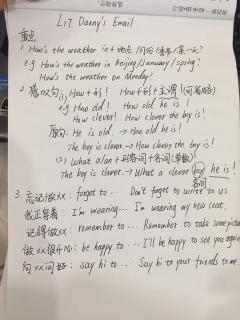 L17 Danny's Email
重点
1. How's the weather in + 地点/月份/季节/某一天?
e.g How's the weather in Beijing/January/spring?
How's the weather on Monday?
2. 感叹句 (1) How + adj! How + adj + 主谓!
e.g How old! How old he is!
How clever! How clever the boy is!
He is old. → How old he is!
The boy is clever → How clever the boy is!
(2) What a/an + 形容词 + 名词
The boy is clever. → What a clever boy he is!
名词
3. 忘记做xx: forget to ... Don't forget to write to us.
我正穿着: I'm wearing... I'm wearing my new coat.
记得做xx: remember to ... Remember to take some
做xx很开心: be happy to ... I'll be happy to see you again
向xx问好: say hi to ... Say hi to your friends to me.